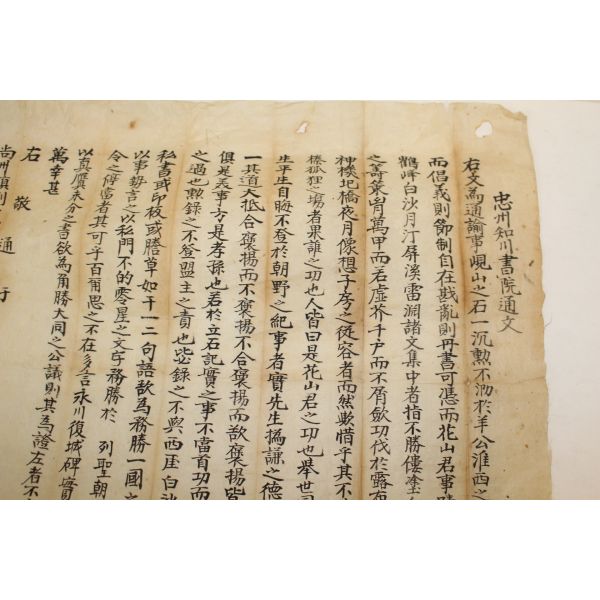 忠州知川書院通文
右文為通諭事峴山之石一沉勲不泐於羊公淮西之
而倡義則節制自在戡亂則丹書可憑而花山君事蹟
鶴峰白沙月汀屏溪雷淵諸文集中者指不勝僂
之奇策胷萬甲而若虛芥千戶而不屑歛功伐於露布
神機圯橋夜月像想子房之從容者而然歟惜乎其不
榛狐狸之場者果誰之功也人皆曰是花山君之功也舉世
生乎生自晦不登於朝野之紀事者實先生撝謙之德
一其道大抵合褒揚而不褒揚不合褒揚而欲褒揚皆
俱是美事方是孝孫也若於立石記實之事不當首功而
之過也勲錄之不登盟主之責也 錄之不與西厓白沙
私書或印板或謄草如干一二句語欲為務勝一國之
以事勢言之以私門不的零星之文字務勝於 列聖朝
令之傳當者其可乎百爾思之不在多言永川復城碑實
以真贋未分之書欲為角勝大同之公議則其為證左者不
萬幸甚
右 敬 通 于
尚州鎮